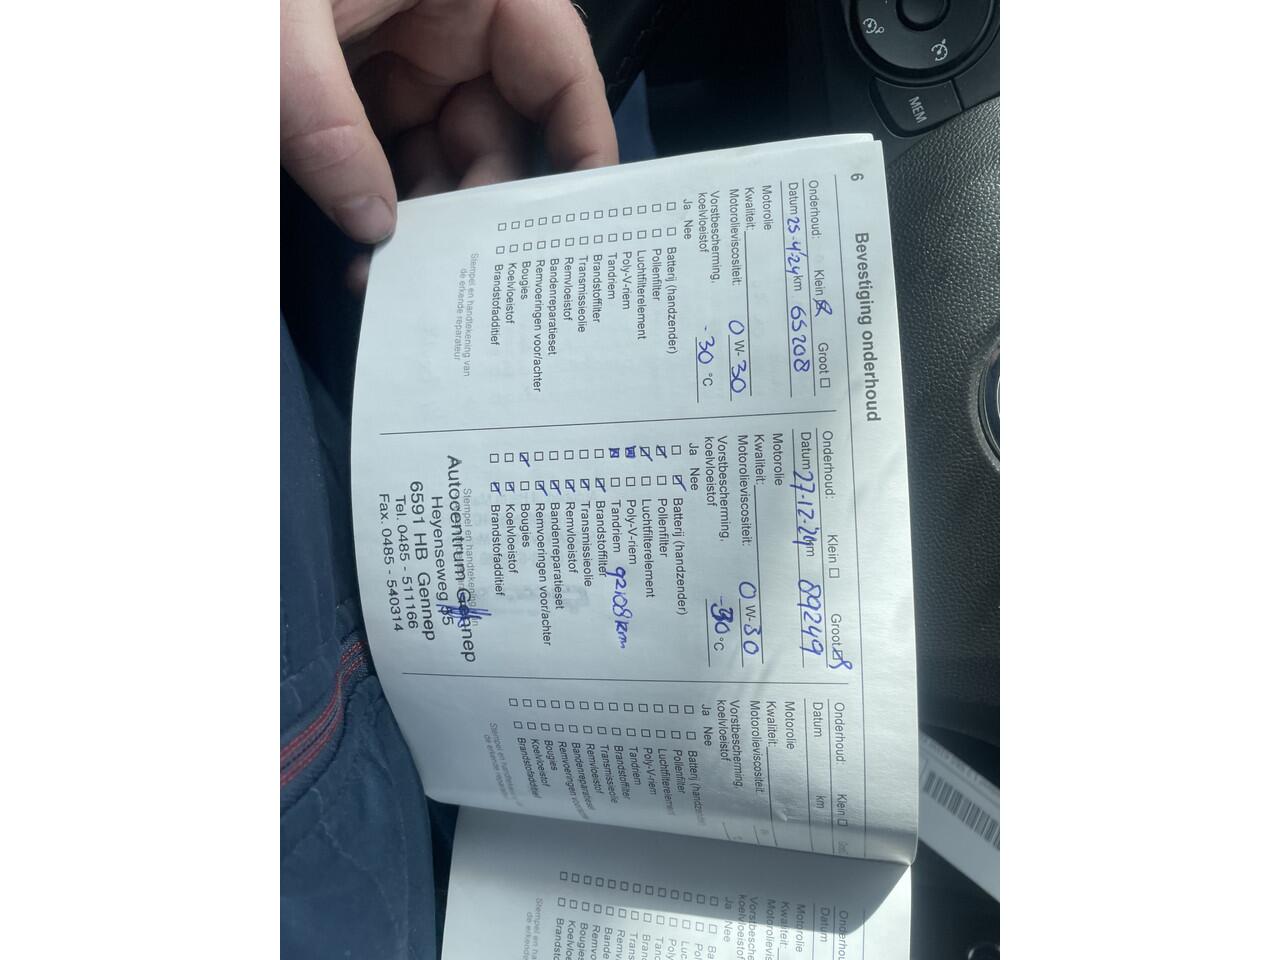 MEM
6
Bevestiging onderhoud
Onderhoud: Klein ☒ Groot ☐
Datum 25-4-'24 km 65208
Motorolie
Kwaliteit:
Motorolieviscositeit: 0 W-30
Vorstbescherming,
koelvloeistof -30 °C
Ja Nee
☐ ☐ Batterij (handzender)
☐ ☐ Pollenfilter
☐ ☐ Luchtfilterelement
☐ ☐ Poly-V-riem
☐ ☐ Tandriem
☐ ☐ Brandstoffilter
☐ ☐ Transmissieolie
☐ ☐ Remvloeistof
☐ ☐ Bandenreparatieset
☐ ☐ Remvoeringen voor/achter
☐ ☐ Bougies
☐ ☐ Koelvloeistof
☐ ☐ Brandstofadditief
Stempel en handtekening van
de erkende reparateur
Onderhoud: Klein ☐ Groot ☒
Datum 27-12-24 km 89249
Motorolie
Kwaliteit:
Motorolieviscositeit: 0 W-30
Vorstbescherming,
koelvloeistof -30 °C
Ja Nee
☐ ☑ Batterij (handzender)
☑ ☐ Pollenfilter
☑ ☐ Luchtfilterelement
☒ ☐ Poly-V-riem
☒ ☐ Tandriem 92108 km
☐ ☑ Brandstoffilter
☐ ☑ Transmissieolie
☐ ☑ Remvloeistof
☐ ☑ Bandenreparatieset
☐ ☑ Remvoeringen voor/achter
☑ ☐ Bougies
☐ ☑ Koelvloeistof
☐ ☑ Brandstofadditief
Stempel en handtekening
Autocentrum Gennep
Heyenseweg
6591 HB Gennep
Tel. 0485 - 511166
Fax. 0485 - 540314
Onderhoud: Klein ☐
Datum km
Motorolie
Kwaliteit:
Motorolieviscositeit:
Vorstbescherming,
koelvloeistof
Ja Nee
☐ ☐ Batterij
☐ ☐ Pollenfilter
☐ ☐ Luchtfilterelement
☐ ☐ Poly-V-riem
☐ ☐ Tandriem
☐ ☐ Brandstoffilter
☐ ☐ Transmissieolie
☐ ☐ Remvloeistof
☐ ☐ Bandenreparatieset
☐ ☐ Remvoeringen
☐ ☐ Bougies
☐ ☐ Koelvloeistof
☐ ☐ Brandstofadditief
Stempel en
de erkende
Datum
Motorolie
Kwaliteit:
Ja Nee
Stempel en
de erkende